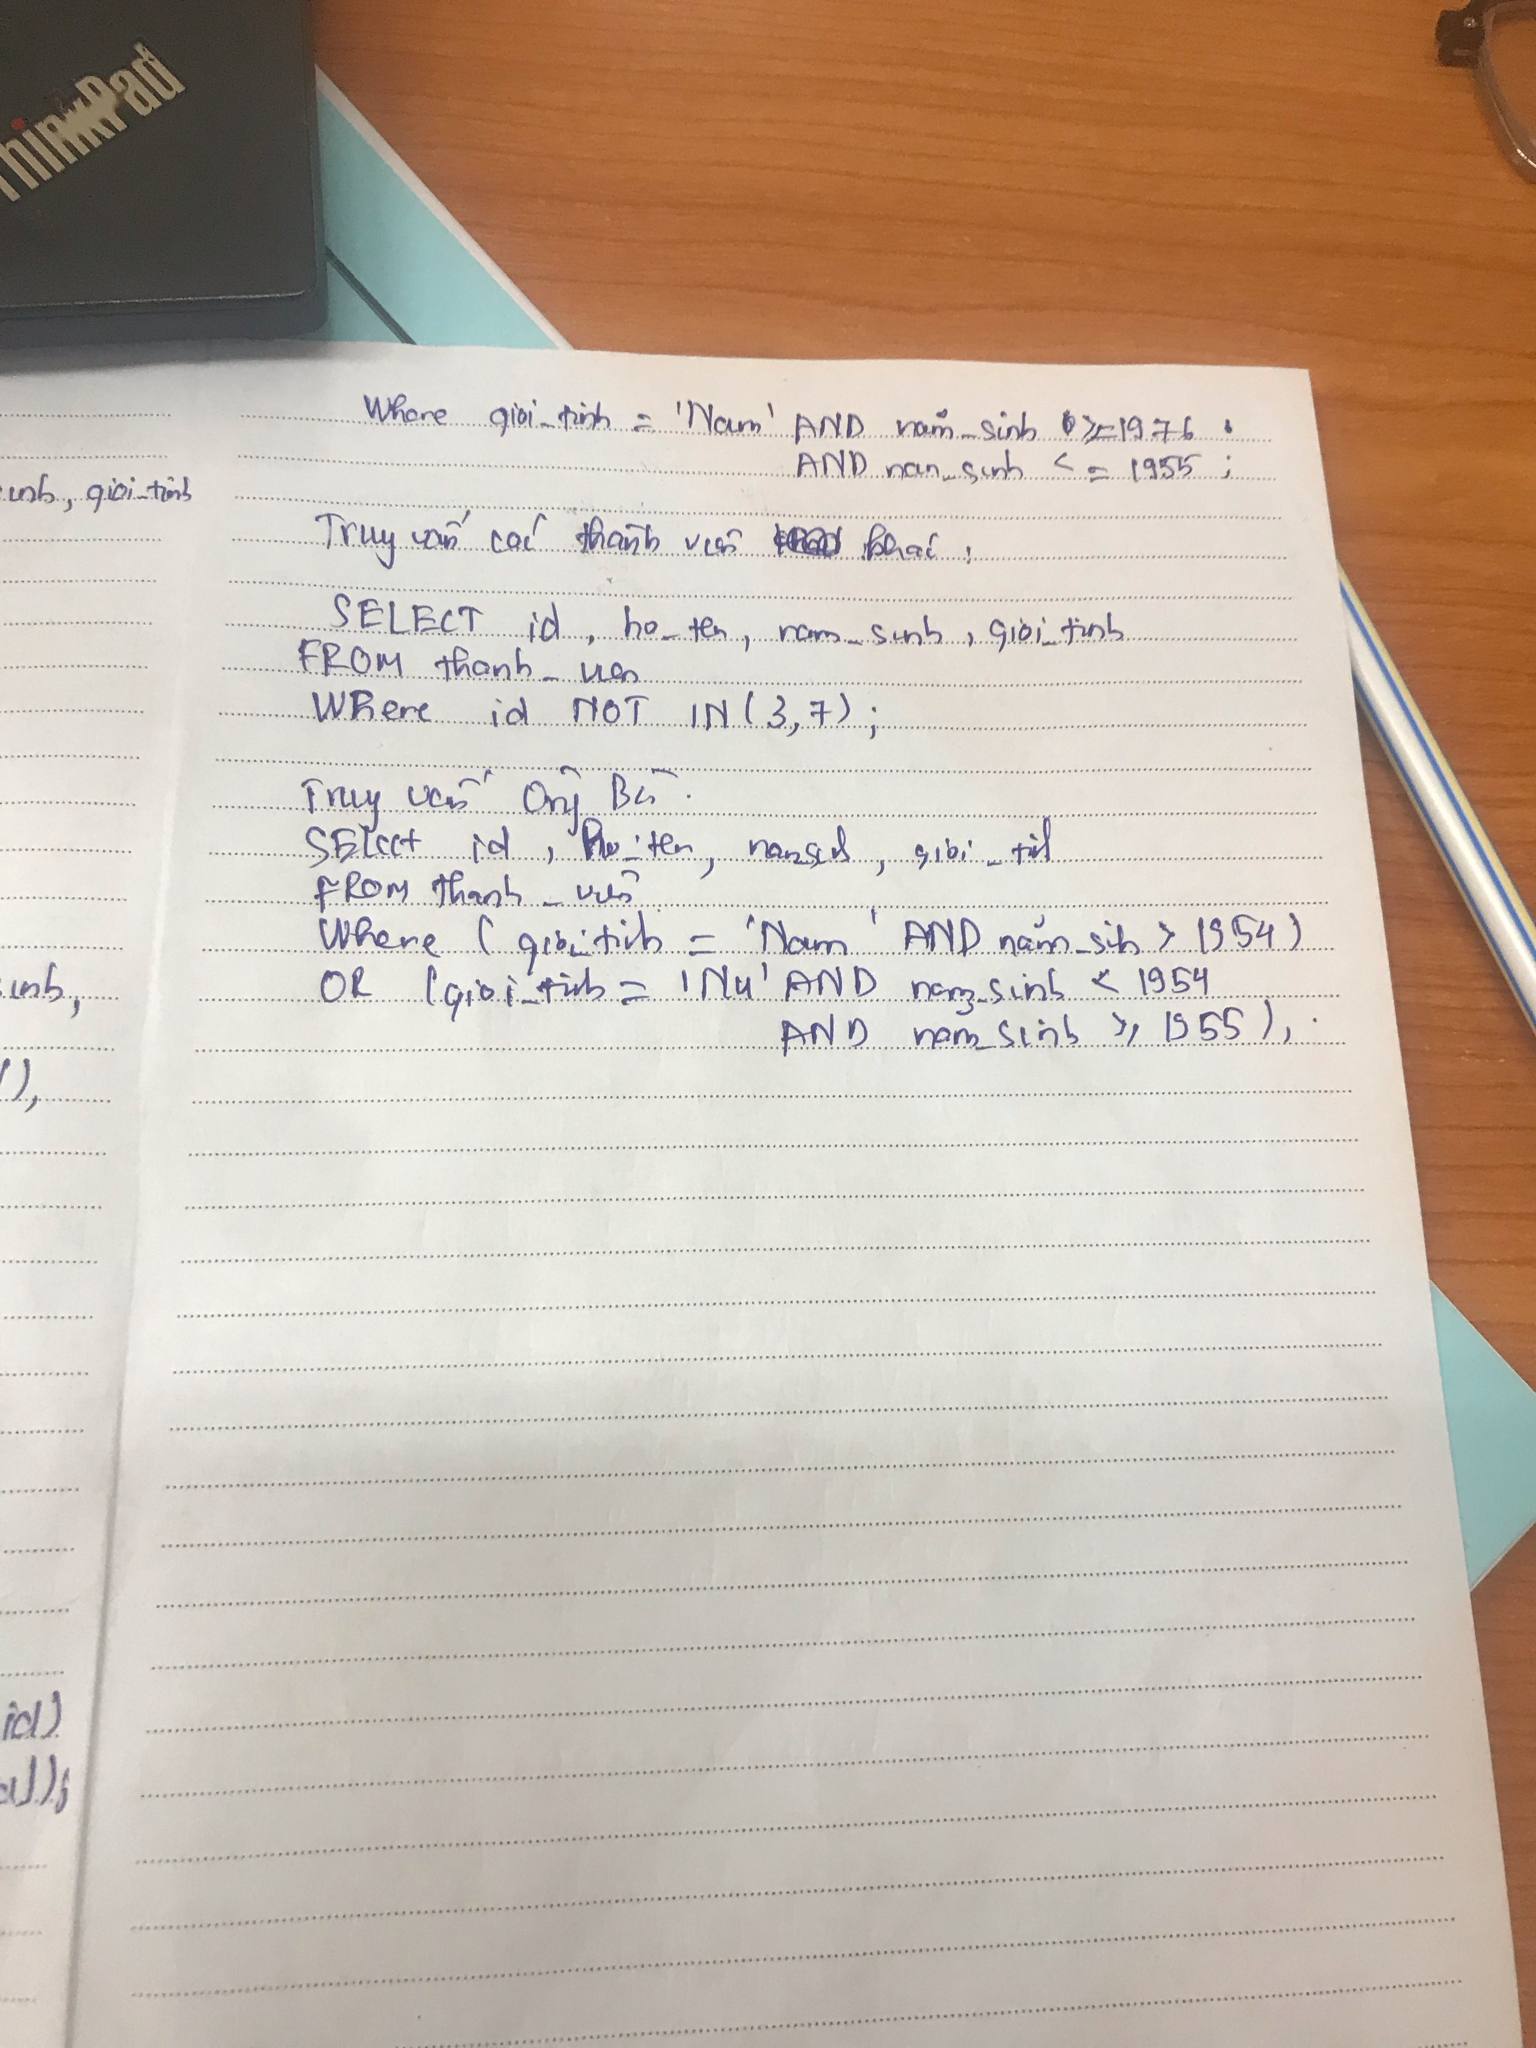 ThinkPad
inh, gioi_tinh
inh,
),
id)
);
Where gioi_tinh = 'Nam' AND năm_sinh >=1976
AND nan_sinh <= 1955;
Truy vấn các thành viên khác:
SELECT id, ho_ten, nam_sinh, gioi_tinh
FROM thanh_vien
Where id NOT IN (3,7);
Truy vấn Ông Bà:
SElect id, ho_ten, gioi_tih
FROM thanh_viên
Where (gioi_tinh = 'Nam' AND năm_sih > 1954)
OR (gioi_tinh = 'Nu' AND nam_sinh < 1954
AND nam_sinh >, 1955),